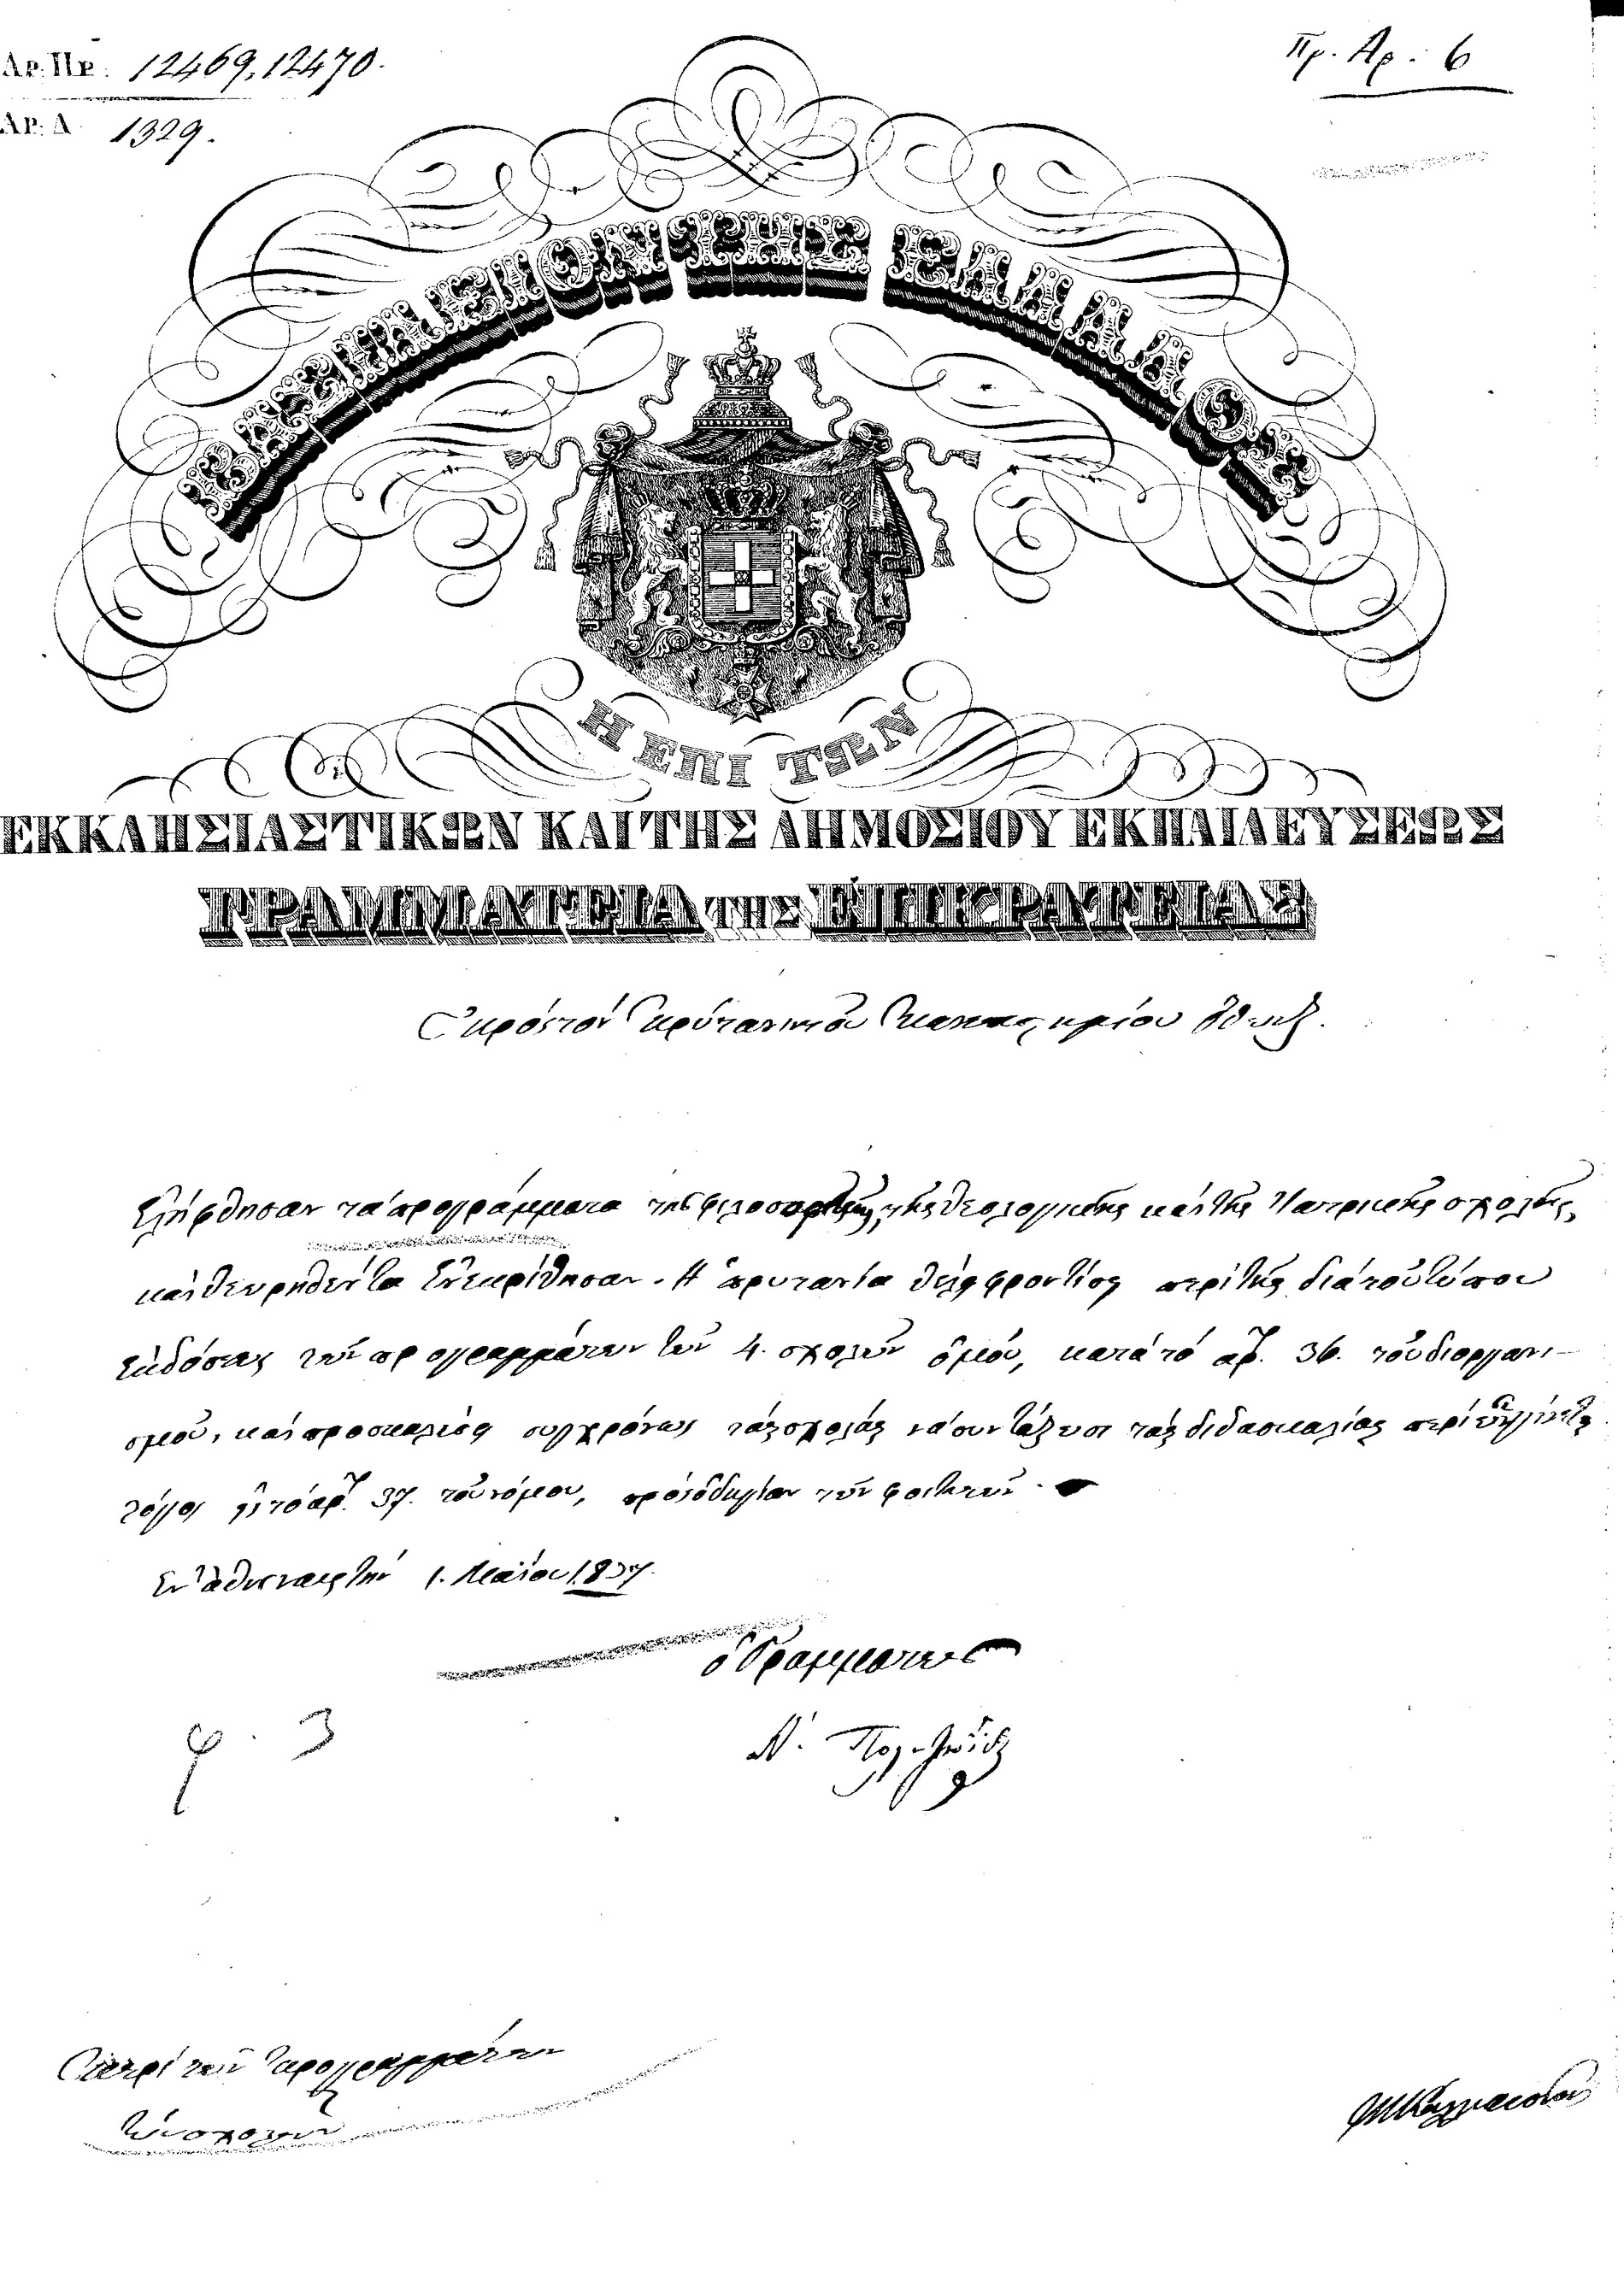 Αρ. Πρ. 12469, 12470.
Πρ. Αρ: 6
Αρ. Δ 1329.
ΒΑΣΙΛΕΙΟΝ ΤΗΣ ΕΛΛΑΔΟΣ
Η ΕΠΙ ΤΩΝ
ΕΚΚΛΗΣΙΑΣΤΙΚΩΝ ΚΑΙ ΤΗΣ ΔΗΜΟΣΙΟΥ ΕΚΠΑΙΔΕΥΣΕΩΣ
ΓΡΑΜΜΑΤΕΙΑ ΤΗΣ ΕΠΙΚΡΑΤΕΙΑΣ
Πρός τόν Πρύτανιν τοῦ Πανεπιστημίου
Ἐλήφθησαν τά προγράμματα τῆς φιλοσοφικῆς, τῆς θεολογικῆς καί τῆς Ἰατρικῆς σχολῆς,
καί θεωρηθέντα ἐνεκρίθησαν. Ἡ πρυτανεία θέλει φροντίσει περί τῆς διά τοῦ τύπου
ἐκδόσεως τῶν προγραμμάτων τῶν 4. σχολῶν ὁμοῦ, κατά τό ἀρ. 36. τοῦ διοργανι-
σμοῦ, καί προσκαλέσει συγχρόνως τάς σχολάς νά συντάξωσι τάς διδασκαλίας περί
τό ἀρ. 37. τοῦ νόμου, πρός ὁδηγίαν τῶν φοιτητῶν.
Ἐν Ἀθήναις τήν 1. Μαΐου 1837.
ὁ Γραμματεύς
φ. 3
Περί τῶν προγραμμάτων
τῶν σχολῶν